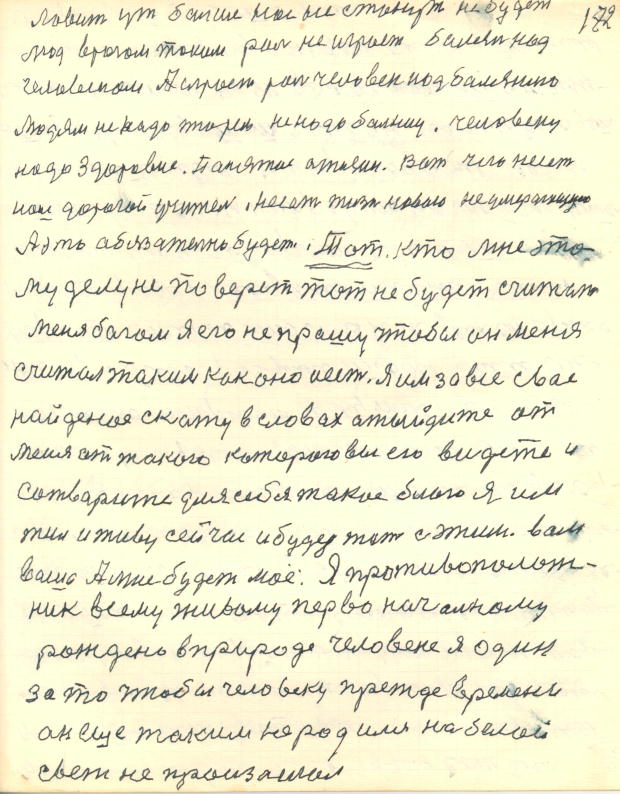 172
не будет
над врагом таким рол не играет балезн над
человеком А играет рол человек над балезнию
Людям не надо тюрем не надо болниц. человеку
надо Здоровие. Вот что несет
нам дорогой учител. новаю неумерающую
А эта абязателно будет. Тот. кто мне это
му делу не поверет тот не будет считат
меня богам Я его не прашу чтобы он меня
считал таким как оно ест. Я им за все свае
найденое скажу в словах атыйдите от
меня от такого которого вы его видете и
сотварите для себя такое благо Я им
жил и живу сейчас и буду жит с этим. вам
ваше А мне будет моё. Я противополож-
ник всему живому перво началному
рождено в природе человеке я один
за то чтобы человеку прежде времени
он еще таким не родился на белой
свет не произашол